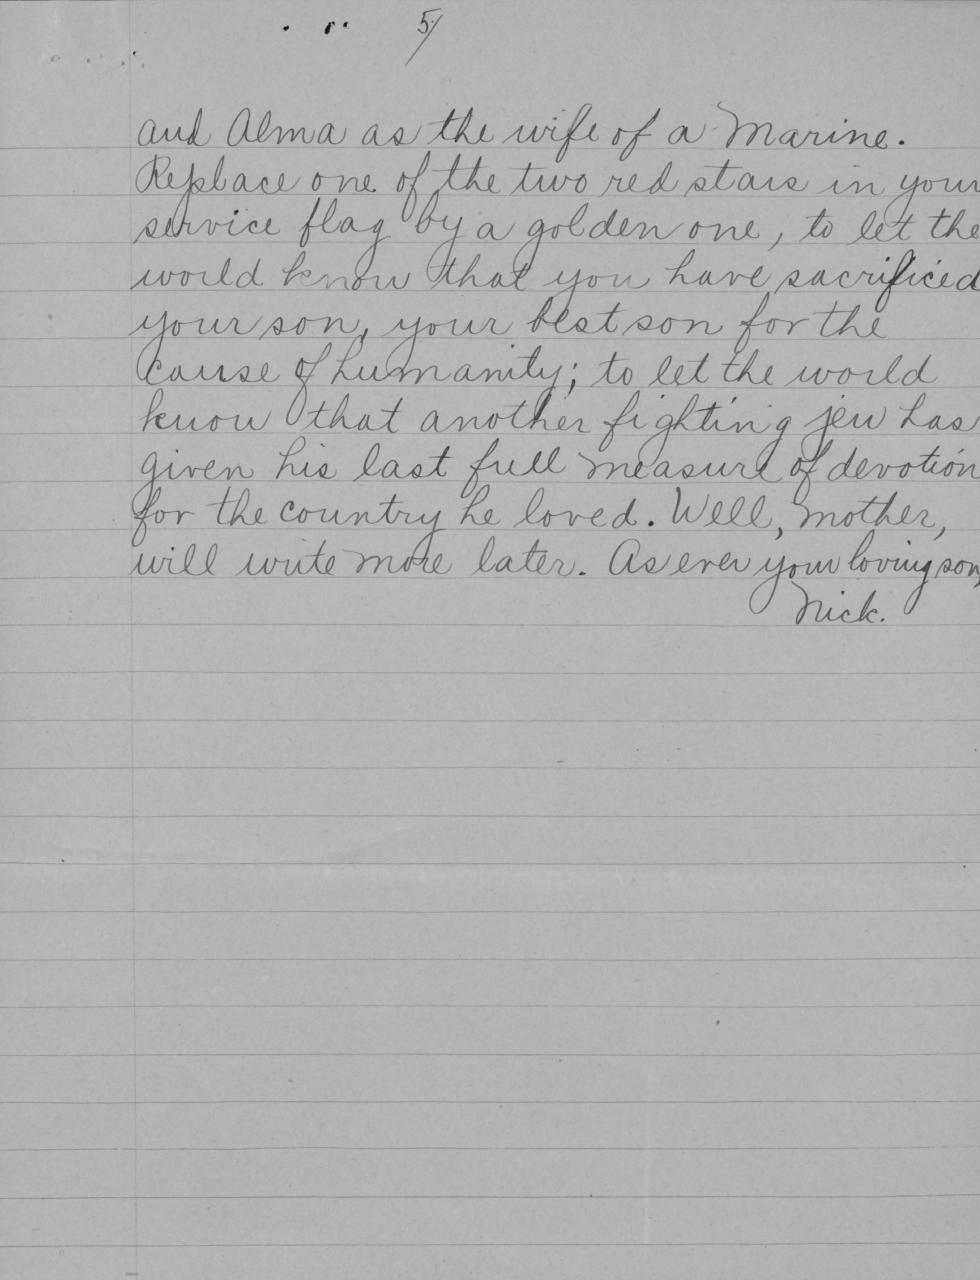 5/
and Alma as the wife of a Marine.
Replace one of the two red stars in your
service flag by a golden one, to let the
world know that you have sacrificed
your son, your best son for the
cause of humanity; to let the world
know that another fighting jew has
given his last full measure of devotion
for the country he loved. Well, mother,
will write more later. As ever your loving son,
Nick.